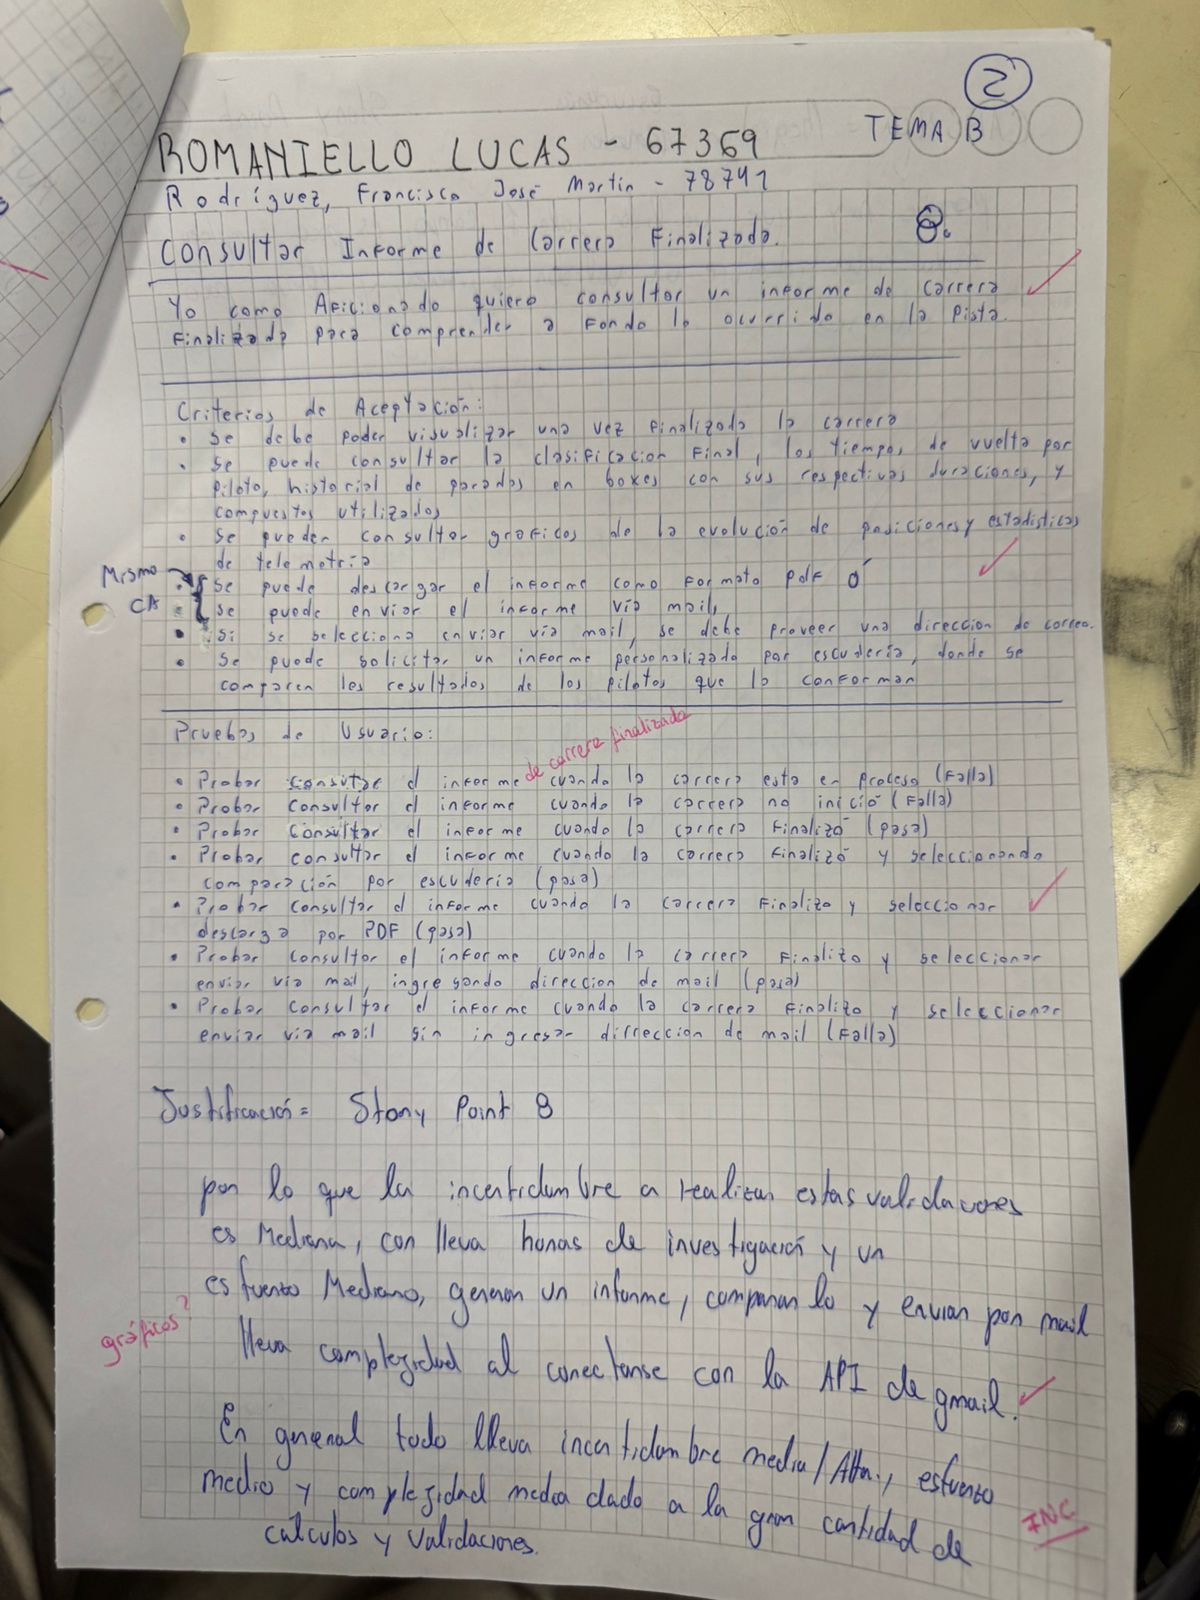 2
TEMA B
ROMANIELLO LUCAS - 67369
Rodríguez, Francisco José Martín - 78741
Consultar Informe de Carrera Finalizada.
8.
Yo como Aficionado quiero consultar un informe de carrera
finalizada para comprender a fondo lo ocurrido en la pista.
Criterios de Aceptación:
• Se debe poder visualizar una vez finalizada la carrera
• Se puede consultar la clasificacion final, los tiempos de vuelta por
piloto, historial de paradas en boxes con sus respectivas duraciones, y
compuestos utilizados
• Se pueden consultar graficos de la evolución de posiciones y estadisticas
de telemetria
Mismo CA
• Se puede descargar el informe como formato pdf ó
• Se puede enviar el informe via mail,
• Si se selecciona enviar via mail, se debe proveer una direccion de correo.
• Se puede solicitar un informe personalizado por escuderia, donde se
comparen los resultados de los pilotos que la conforman
Pruebas de Usuario:
de carrera finalizada
• Probar consultar el informe cuando la carrera esta en proceso (Falla)
• Probar consultar el informe cuando la carrera no inició (Falla)
• Probar consultar el informe cuando la carrera finalizó (pasa)
• Probar consultar el informe cuando la carrera finalizó y seleccionando
comparación por escuderia (pasa)
• Probar consultar el informe cuando la carrera finalizo y seleccionar
descarga por PDF (pasa)
• Probar consultar el informe cuando la carrera finalizo y seleccionar
enviar via mail, ingresando direccion de mail (pasa)
• Probar consultar el informe cuando la carrera finalizo y seleccionar
enviar via mail sin ingresar dirreccion de mail (Falla)
Justificación = Story Point 8
por lo que la incertidumbre a realizar estas validaciones
es Mediana, con lleva horas de investigación y un
esfuerzo Mediano, generar un informe, compararlo y enviar por mail
gráficos?
lleva complegidad al conectarse con la API de gmail.
En general todo lleva incertidumbre media/Alta., esfuerzo
medio y complegidad media dado a la gran cantidad de
cálculos y validaciones.
INC